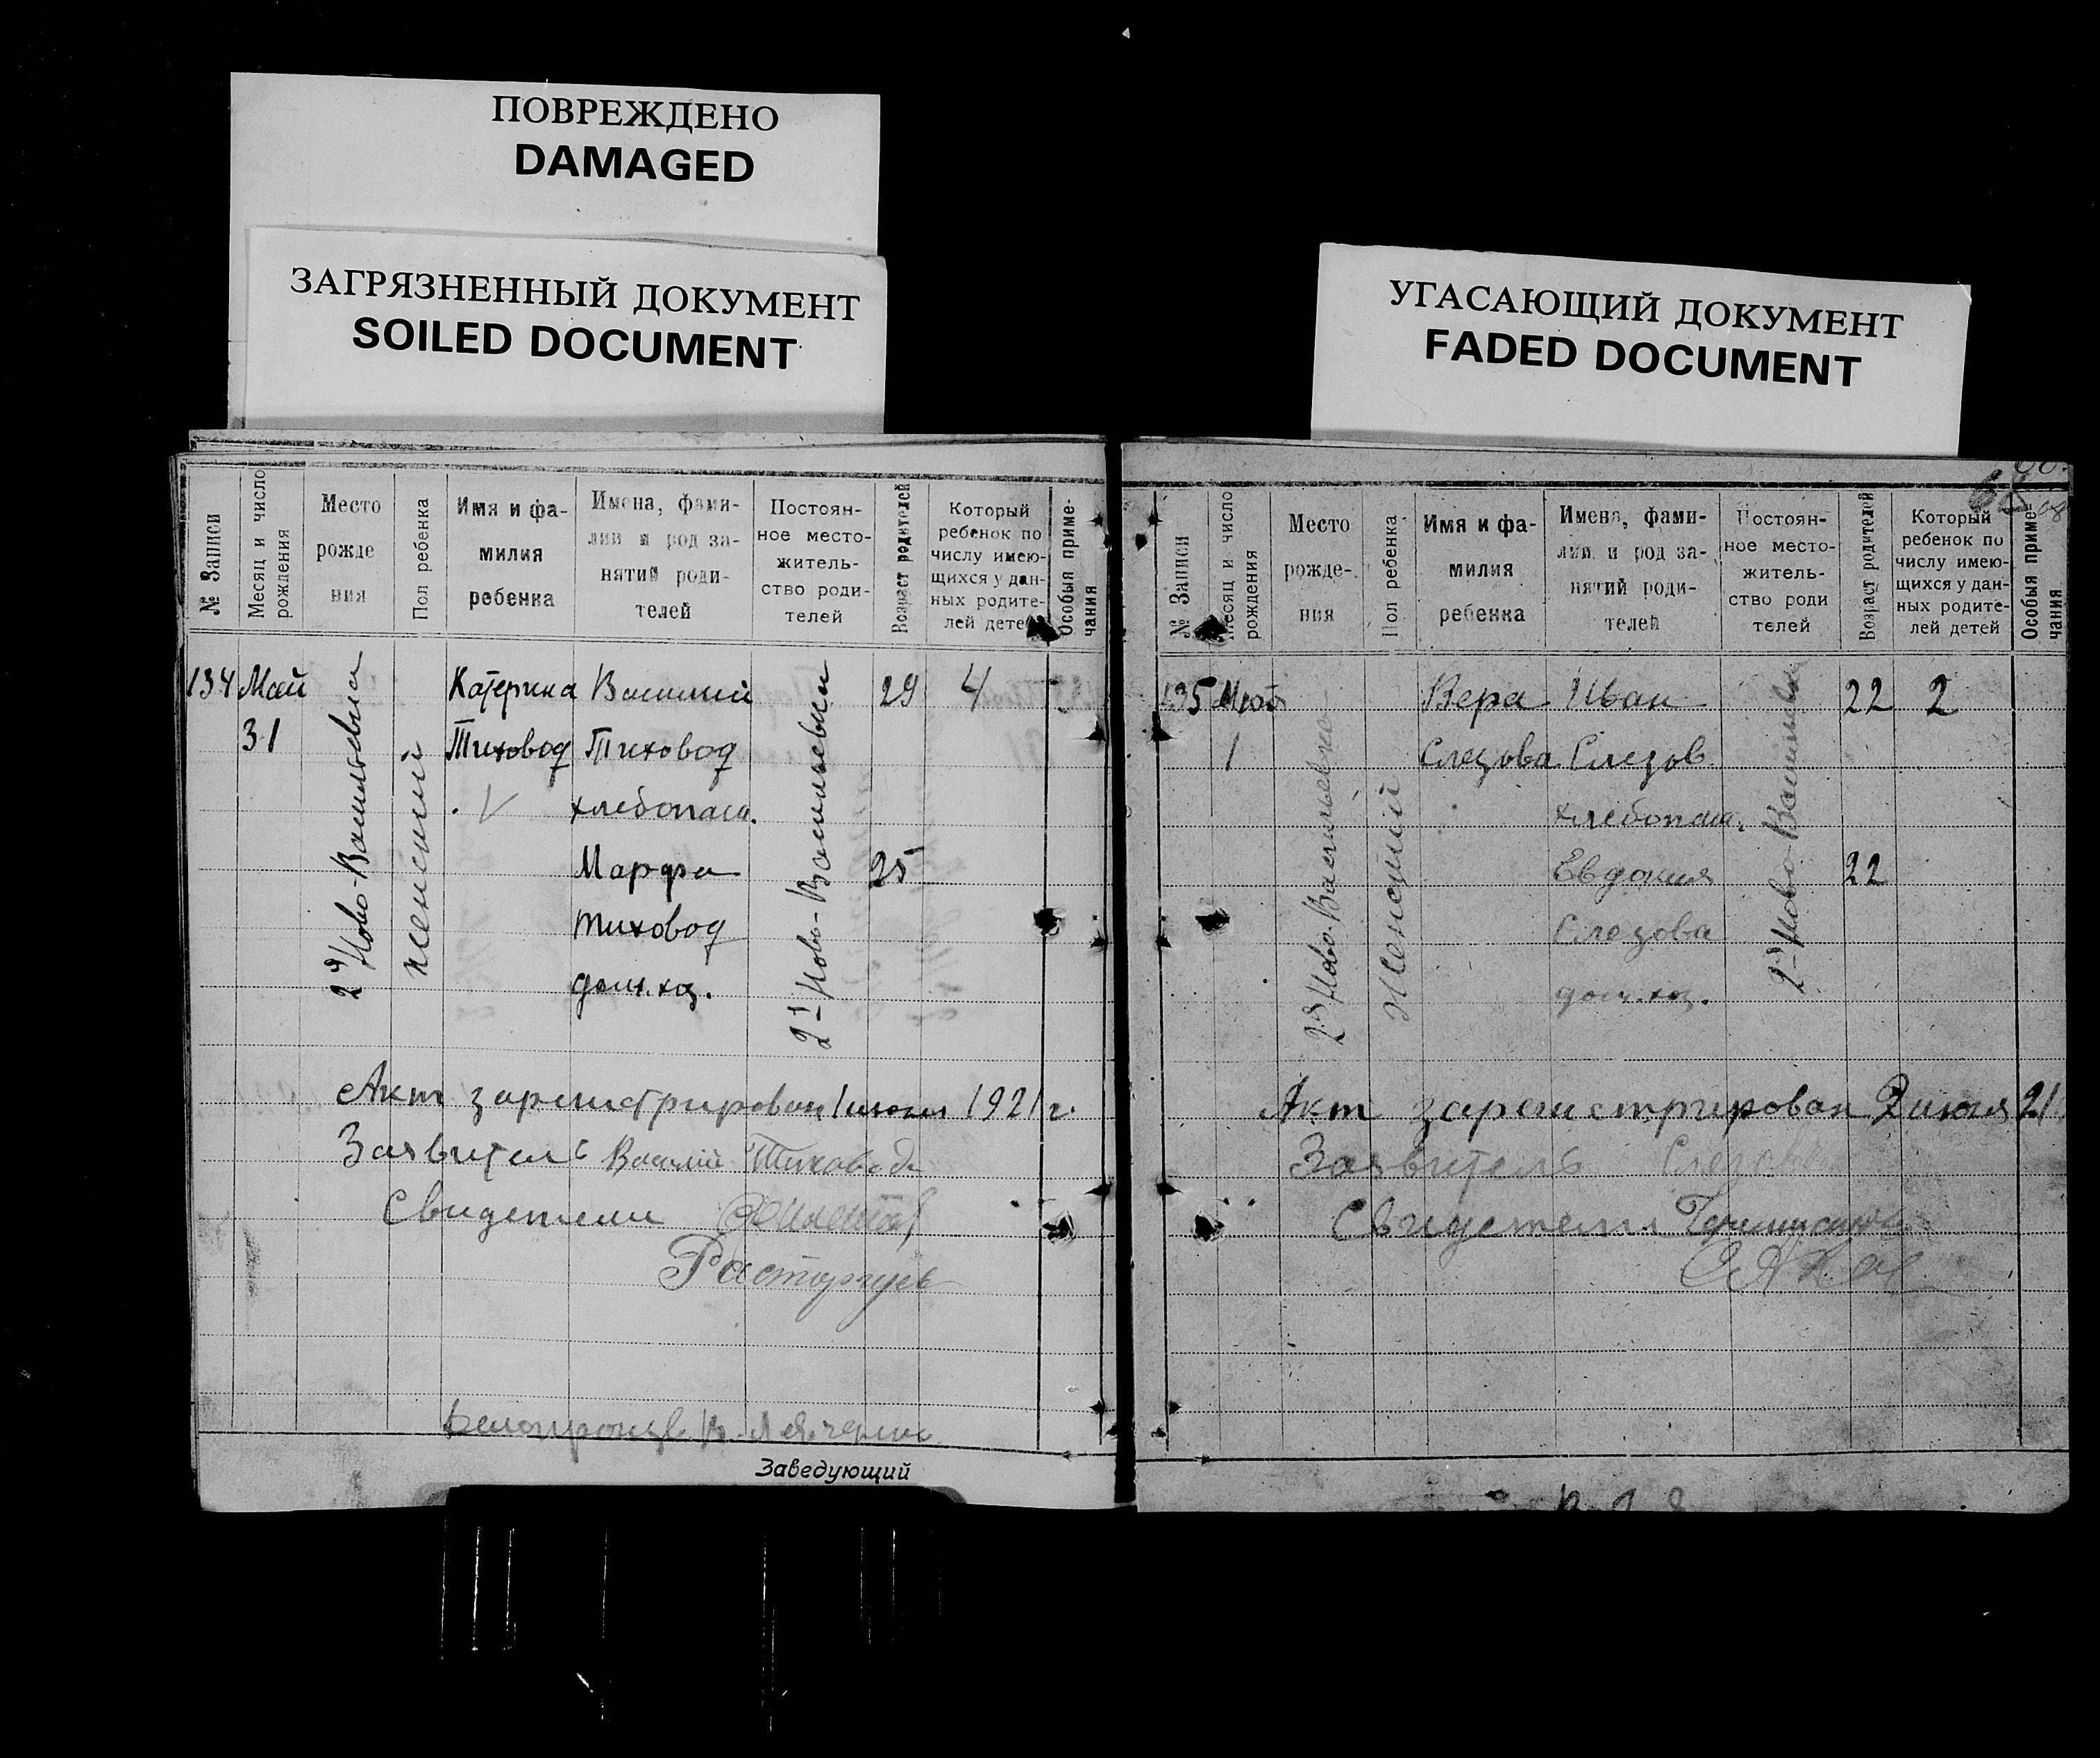 ПОВРЕЖДЕНО
DAMAGED
ЗАГРЯЗНЕННЫЙ ДОКУМЕНТ
SOILED DOCUMENT
УГАСАЮЩИЙ ДОКУМЕНТ
FADED DOCUMENT
№ Записи
Месяц и число
рождения
Место
рожде
ния
Пол ребенка
Имя и фа-
милия
ребенка
Имена, фами-
лии и род за-
нятий роди-
телей
Постоян-
ное место-
житель-
ство роди-
телей
Возраст родителей
Который
ребенок по
числу имею-
щихся у дан-
ных родите-
лей детей
Особыя приме-
чания
134 Май
31
2й Ново-Васильевка
женский
Катерина
Тиховод
Василий
Тиховод
хлебопаш.
Марфа
Тиховод
дом.хоз.
2й Ново-Васильевка
29
25
4
Акт зарегистрирован 1 июня 1921 г.
Заявитель Василий Тиховод
Свидетели
Расторгуев
Заведующий
68
№ Записи
Месяц и число
рождения
Место
рожде-
ния
Пол ребенка
Имя и фа-
милия
ребенка
Имена, фами-
лии и род за-
нятий роди-
телей
Постоян-
ное место-
житель-
ство роди
телей
Возраст родителей
Который
ребенок по
числу имею-
щихся у дан-
ных родите-
лей детей
Особыя приме-
чания
135
1
2й Ново-Васильевка
Женский
Вера
Слезова
Иван
Слезов
хлебопаш.
Евдокия
Слезова
дом.хоз.
2й Ново-Васильевка
22
22
2
Акт зарегистрирован 2 июня 21
Заявитель
Свидетели